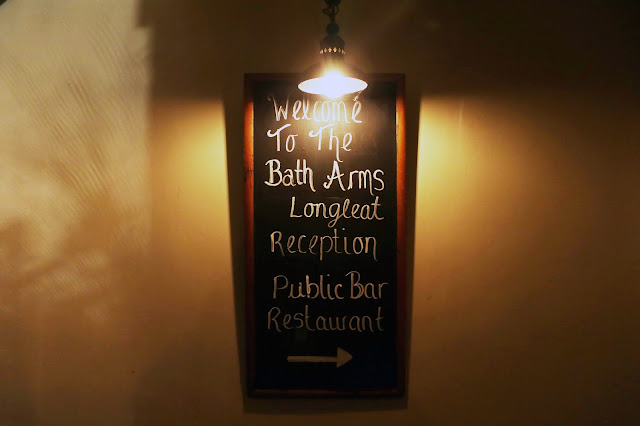 Welcome
To The
Bath Arms
Longleat
Reception
Public Bar
Restaurant